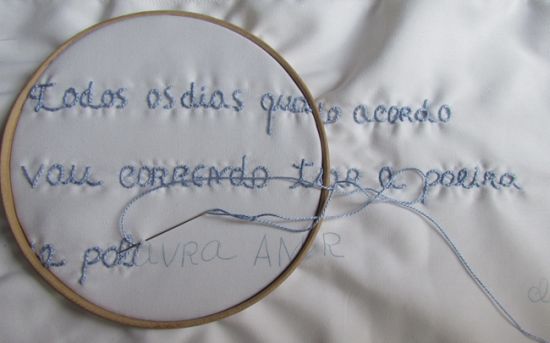 Todos os dias quando acordo
vou correndo tirar a poeira
da palavra AMOR